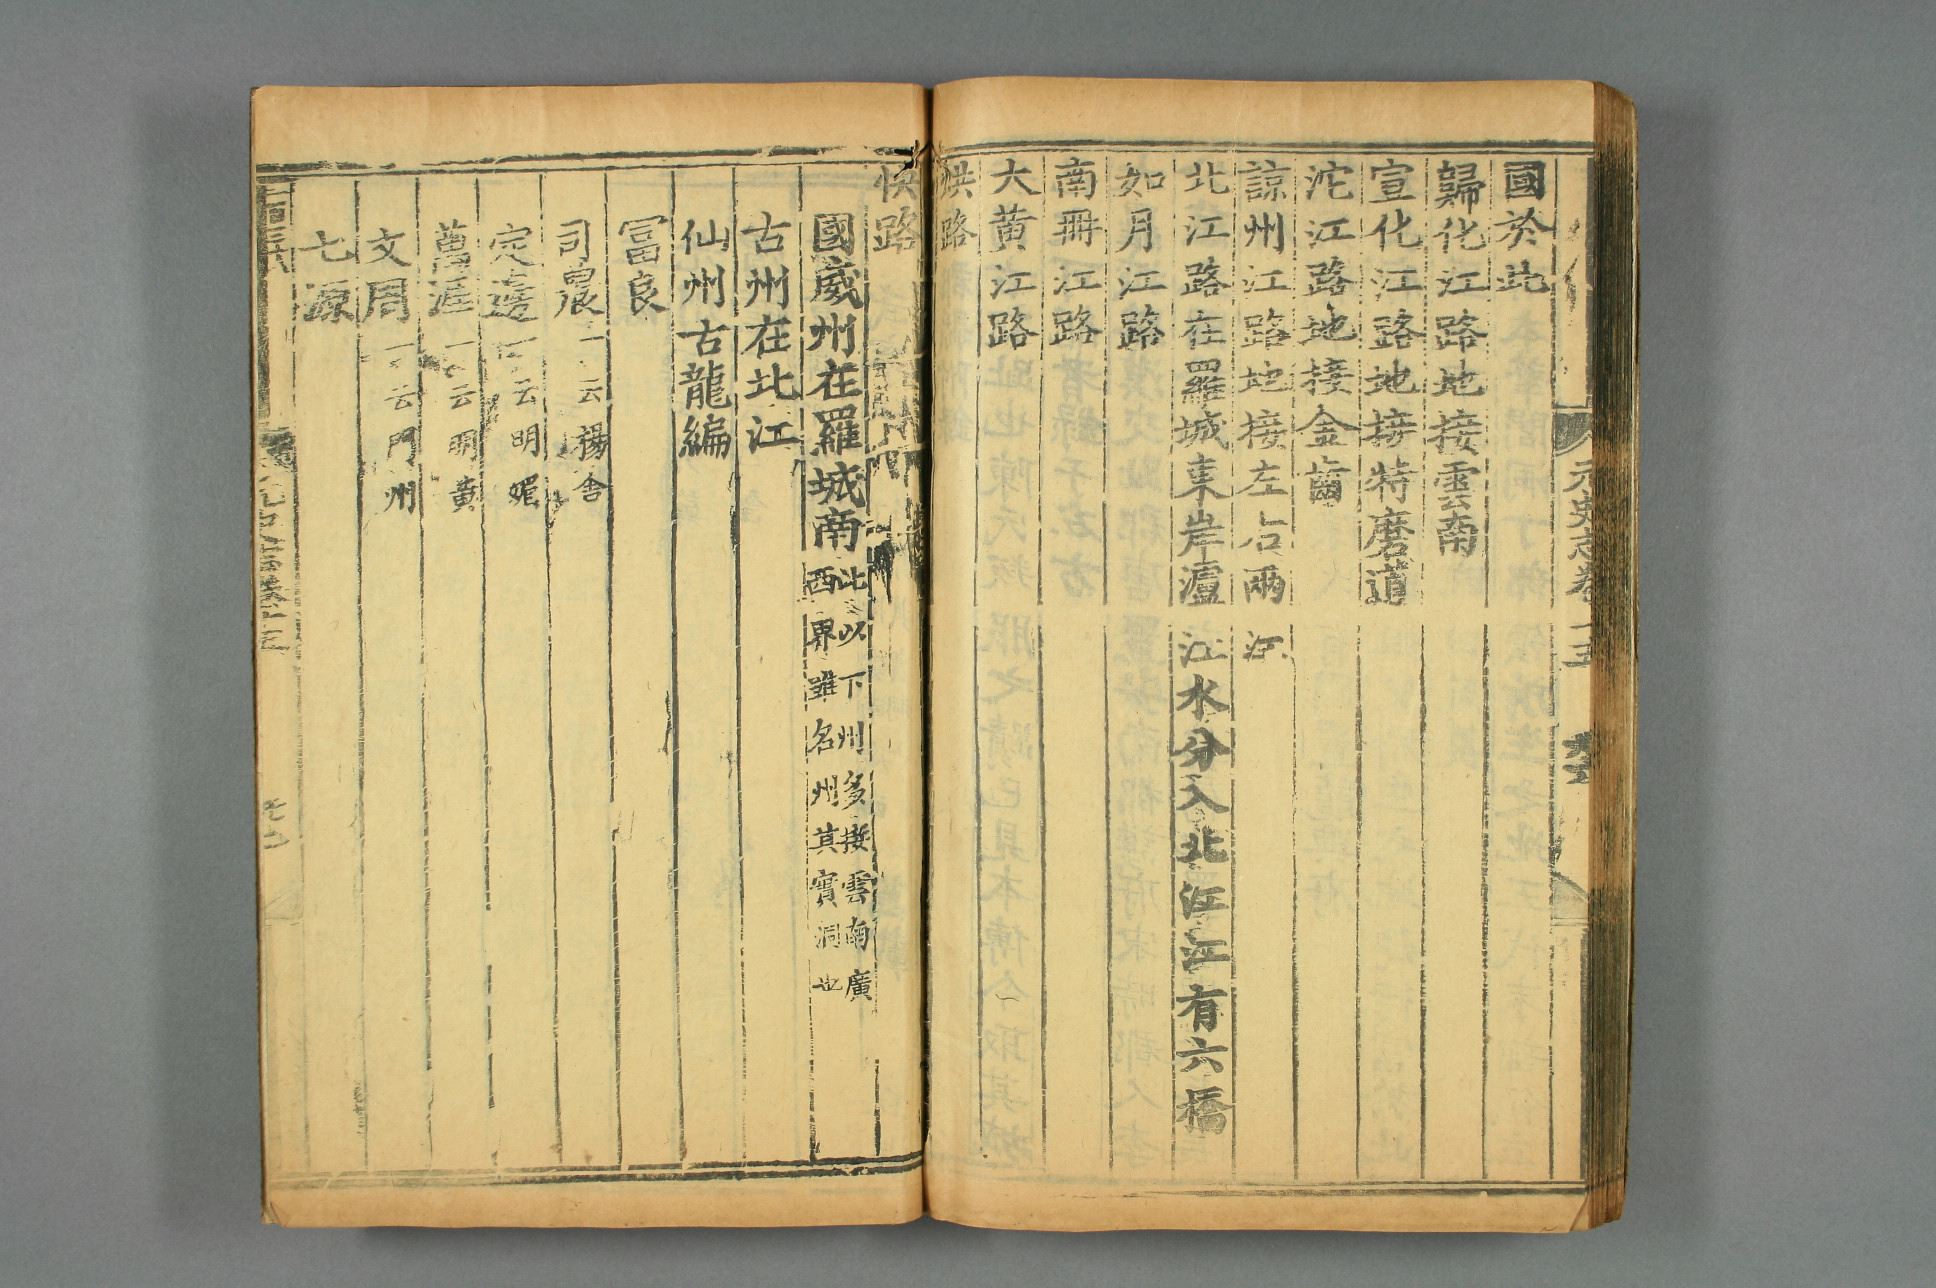 元史志卷十五
國於此
歸化江路地接雲南
宣化江路地接特磨道
沱江路地接金齒
諒州江路地接左右兩江
北江路在羅城東岸瀘江水分入北江江有六橋
如月江路
南冊江路
大黃江路
烘路
快路
國威州在羅城南此以下州多接雲南廣
西界雖名州其實洞也
古州在北江
仙州古龍編
冨良
司農一云楊舍
定邊一云明媚
萬涯一云明黃
文周一云門州
七源